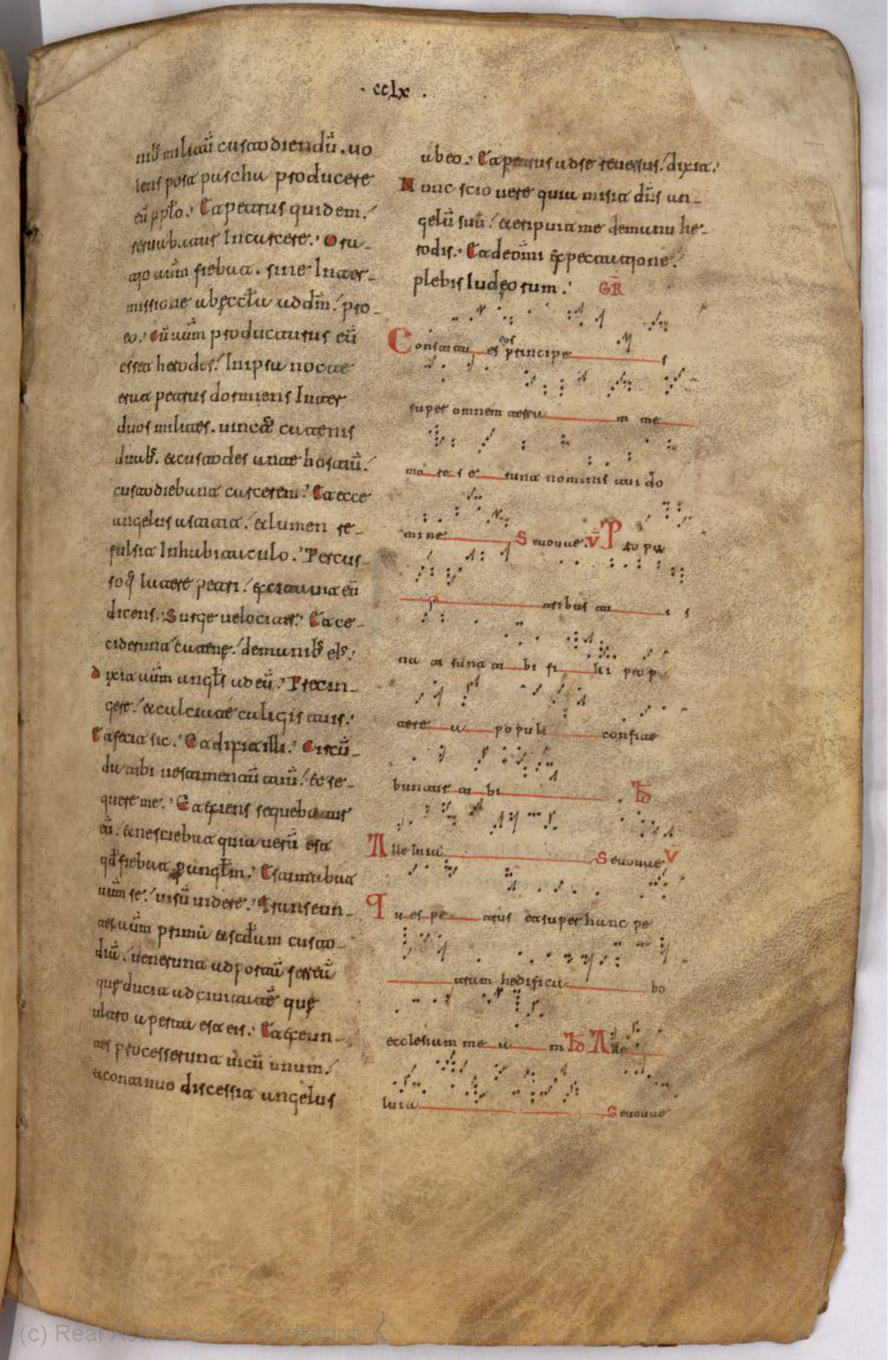 · cclx .
nib; militū custodiendū. uo
lens post pascha producere
eū pplo. Et petrus quidem
seruabatur In carcere. Ora
tio autem fiebat. sine Inter
missione ab ęcclā ad dm̄. pro
eo. Cū autem producturus eū
esset herodes. In ipsa nocte
erat petrus dormiens Inter
duos milites. uinctus catenis
duab;. et custodes ante hostiū
custodiebant carcerem. Et ecce
angelus astitit. et lumen re
fulsit In habitaculo. Percus
soq; latere petri. excitauit eū
dicens. Surge uelociter. Et ce
ciderunt catenę. de manib; eis.
Dixit autem angls ad eū. Precin
gere. et calcia te caligas tuas.
Et fecit sic. Et dixit illi. Circū
da tibi uestimentū tuū. et se
quere me. Et exiens sequebatur
eū. et nesciebat quia uerū est
qd fiebat p anglm. Estimabat
autem se. uisū uidere. Transeun
tes autem primā et scdam custo
diā. uenerunt ad portā ferreā
quę ducit ad ciuitatē quę
ultro aperta est eis. Et exeun
tes processerunt uicū unum.
et continuo discessit angelus
ab eo. Et petrus ad se reuersus. dixit.
Nunc scio uere quia misit dn̄s an
gelū suū. et eripuit me de manu he
rodis. Et de omi expectatione
plebis Iudęorum. GR
Constitues eos principe s
super omnem terra m me
mo res e runt nominis tui do
mine Seuouae. V Pro pa
tribus tu i s
na ti sunt ti bi fi lii prop
tere a populi confite
buntur ti bi
Alleluia Seuouae V
Tu es pe trus et super hanc pe
tram hedifica bo
ecclesiam me a m Alle
luia Seuouae
(c) Real Academia de la Historia